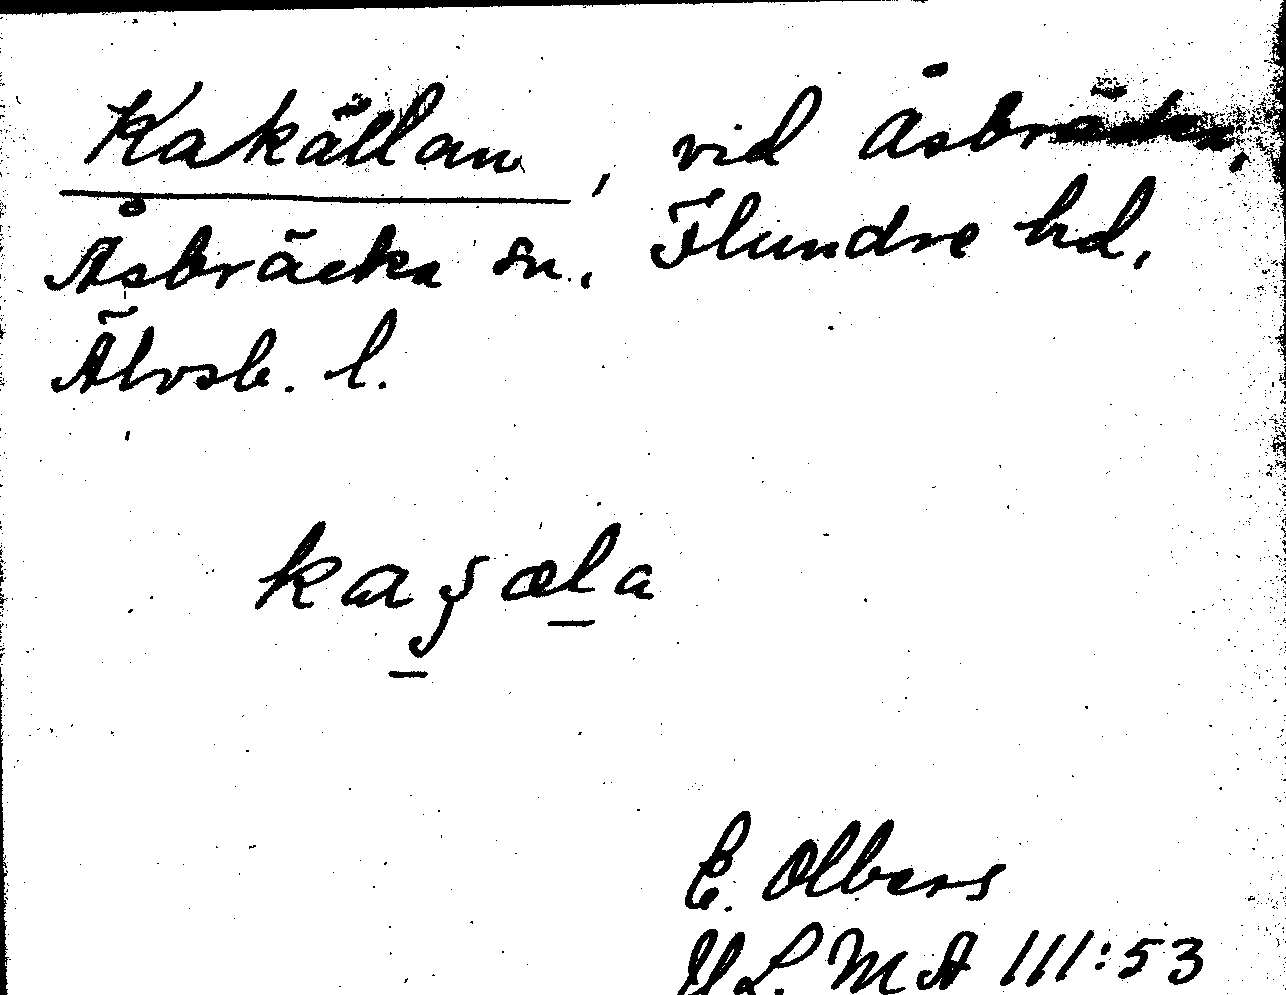 Kakällan, vid Åsbräcka,
Åsbräcka sn. Flundre hd,
Älvsb. l.
kaʂæla
E. Olbers
V.L. M A III:53